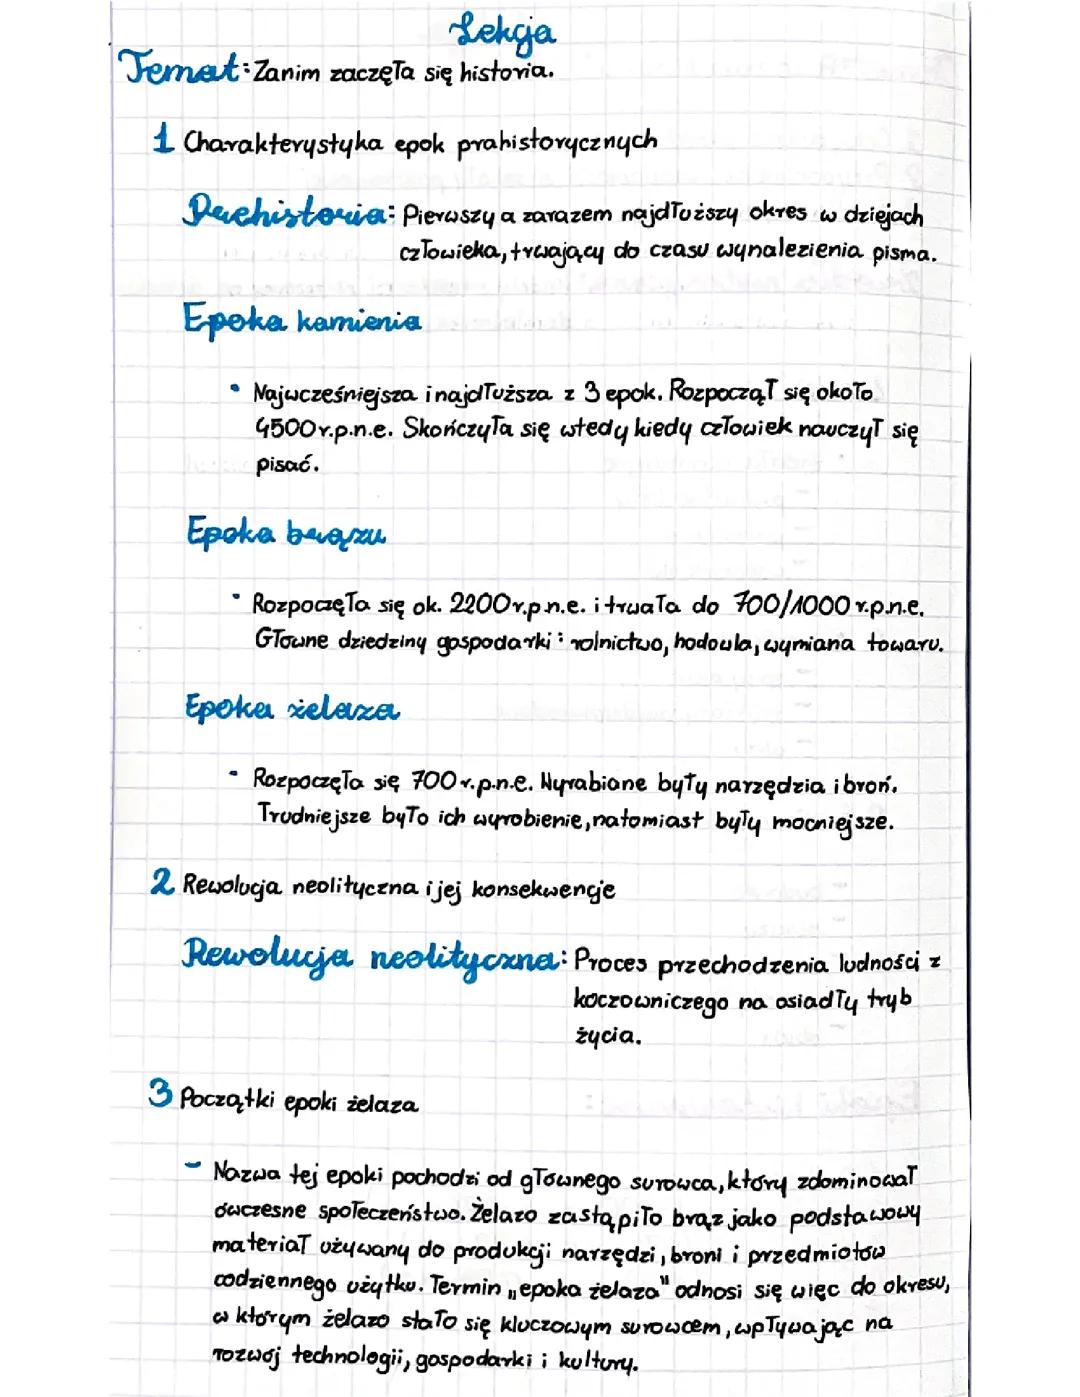 Lekcja
Temat: Zanim zaczęła się historia.
1 Charakterystyka epok prahistorycznych
Prehistoria: Pierwszy a zarazem najdłuższy okres w dziejach
człowieka, trwający do czasu wynalezienia pisma.
Epoka kamienia
• Najwcześniejsza i najdłuższa z 3 epok. Rozpoczął się około
4500r.p.n.e. Skończyła się wtedy kiedy człowiek nauczył się
pisać.
Epoka brązu
• Rozpoczęła się ok. 2200r.p.n.e. i trwała do 700/1000 r.p.n.e.
Główne dziedziny gospodarki: rolnictwo, hodowla, wymiana towaru.
Epoka żelaza
- Rozpoczęła się 700r.p.n.e. Wyrabiane były narzędzia i broń.
Trudniejsze było ich wyrobienie, natomiast były mocniejsze.
2 Rewolucja neolityczna i jej konsekwencje
Rewolucja neolityczna: Proces przechodzenia ludności z
koczowniczego na osiadły tryb
życia.
3 Początki epoki żelaza
- Nazwa tej epoki pochodzi od głównego surowca, który zdominował
ówczesne społeczeństwo. Żelazo zastąpiło brąz jako podstawowy
materiał używany do produkcji narzędzi, broni i przedmiotów
codziennego użytku. Termin „epoka żelaza" odnosi się więc do okresu,
w którym żelazo stało się kluczowym surowcem, wpływając na
rozwój technologii, gospodarki i kultury.